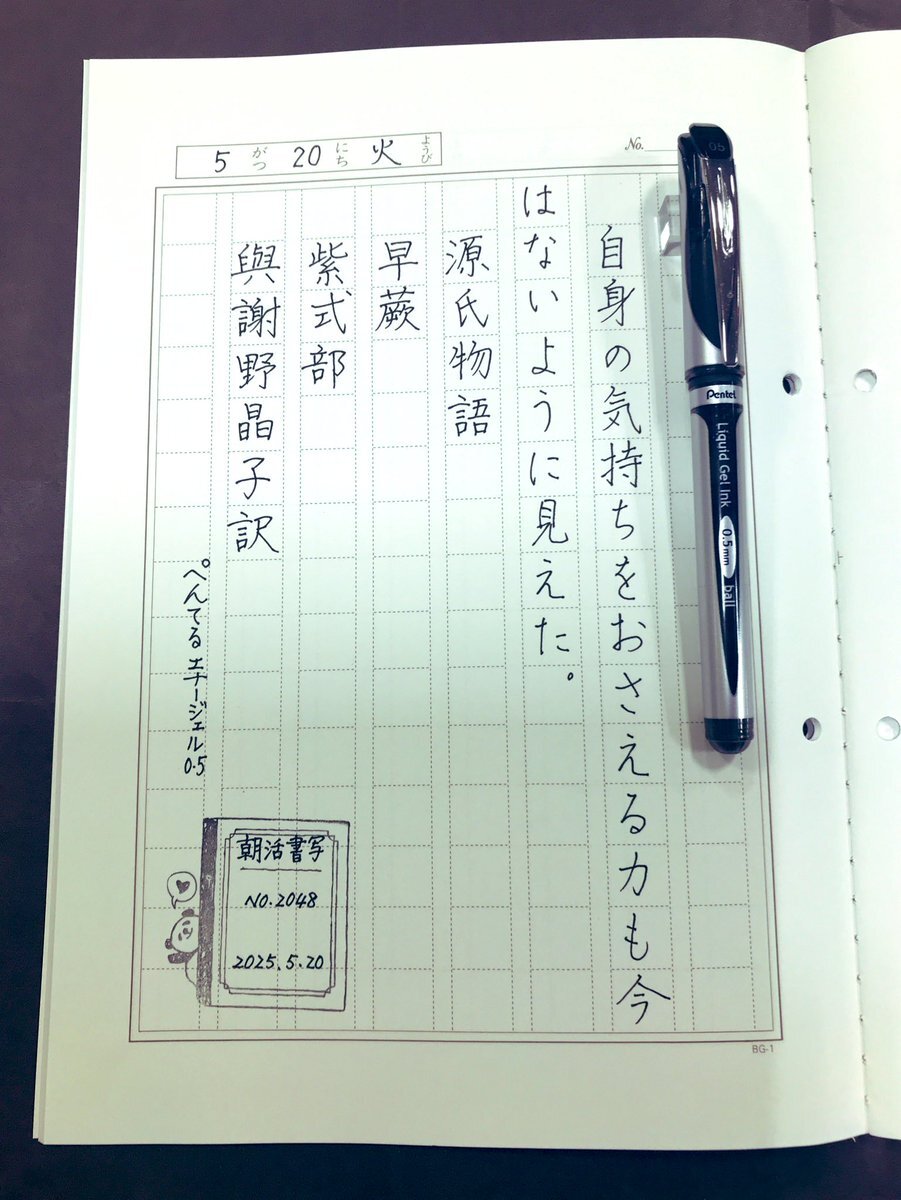 5がつ20にち火ようび
No.
自身の気持ちをおさえる力も今
はないように見えた。
源氏物語
早蕨
紫式部
與謝野晶子訳
ぺんてるエナージェル0.5
朝活書写
NO.2048
2025.5.20
BG-1
05
Pentel
Liquid Gel Ink 0.5mm ball